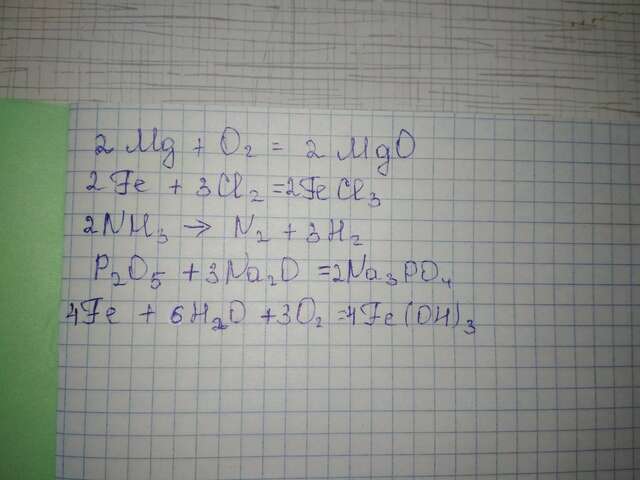 2 Mg + O₂ = 2 MgO
2Fe + 3Cl₂ = 2FeCl₃
2NH₃ → N₂ + 3H₂
P₂O₅ + 3Na₂O = 2Na₃PO₄
4Fe + 6H₂O + 3O₂ = 4Fe(OH)₃